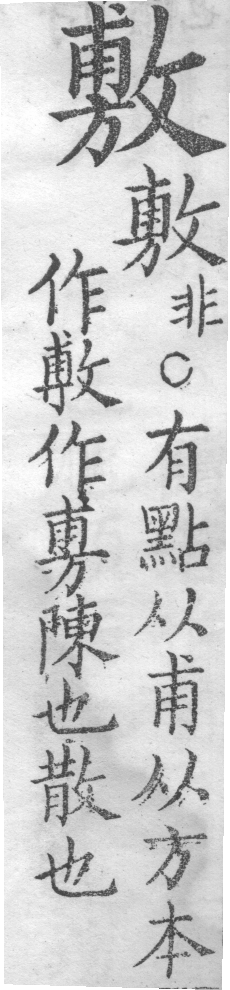 敷
敷非○有點从甫从方本
作敷作旉陳也散也